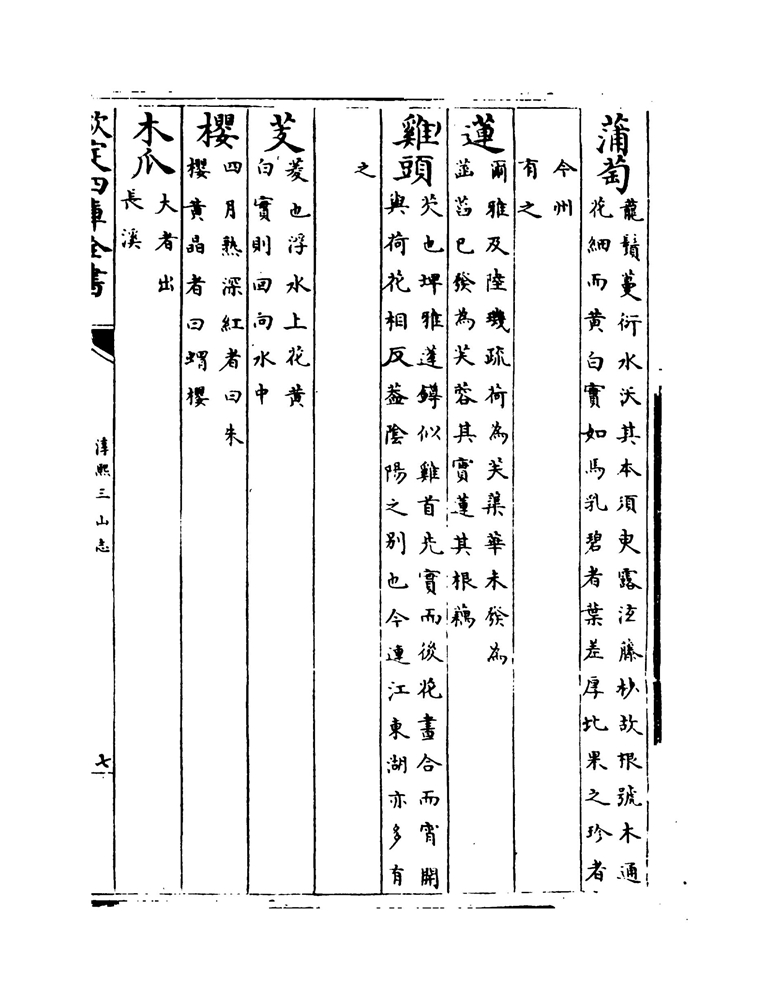 蒲萄
龍鬚蔓衍水沃其本須臾露泣藤杪故根號木通
花細而黃白實如馬乳碧者葉差厚北果之珍者
今州
有之
蓮
爾雅及陸璣疏荷為芙蕖華未發為
菡萏已發為芙蓉其實蓮其根藕
雞頭
芡也埤雅蓬鐏似雞首先實而後花晝合而宵開
與荷花相反蓋陰陽之別也今連江東湖亦多有
之
芰
菱也浮水上花黃
白實則回向水中
櫻
四月熟深紅者曰朱
櫻黃晶者曰蠟櫻
木瓜
大者出
長溪
欽定四庫全書
淳熙三山志
七